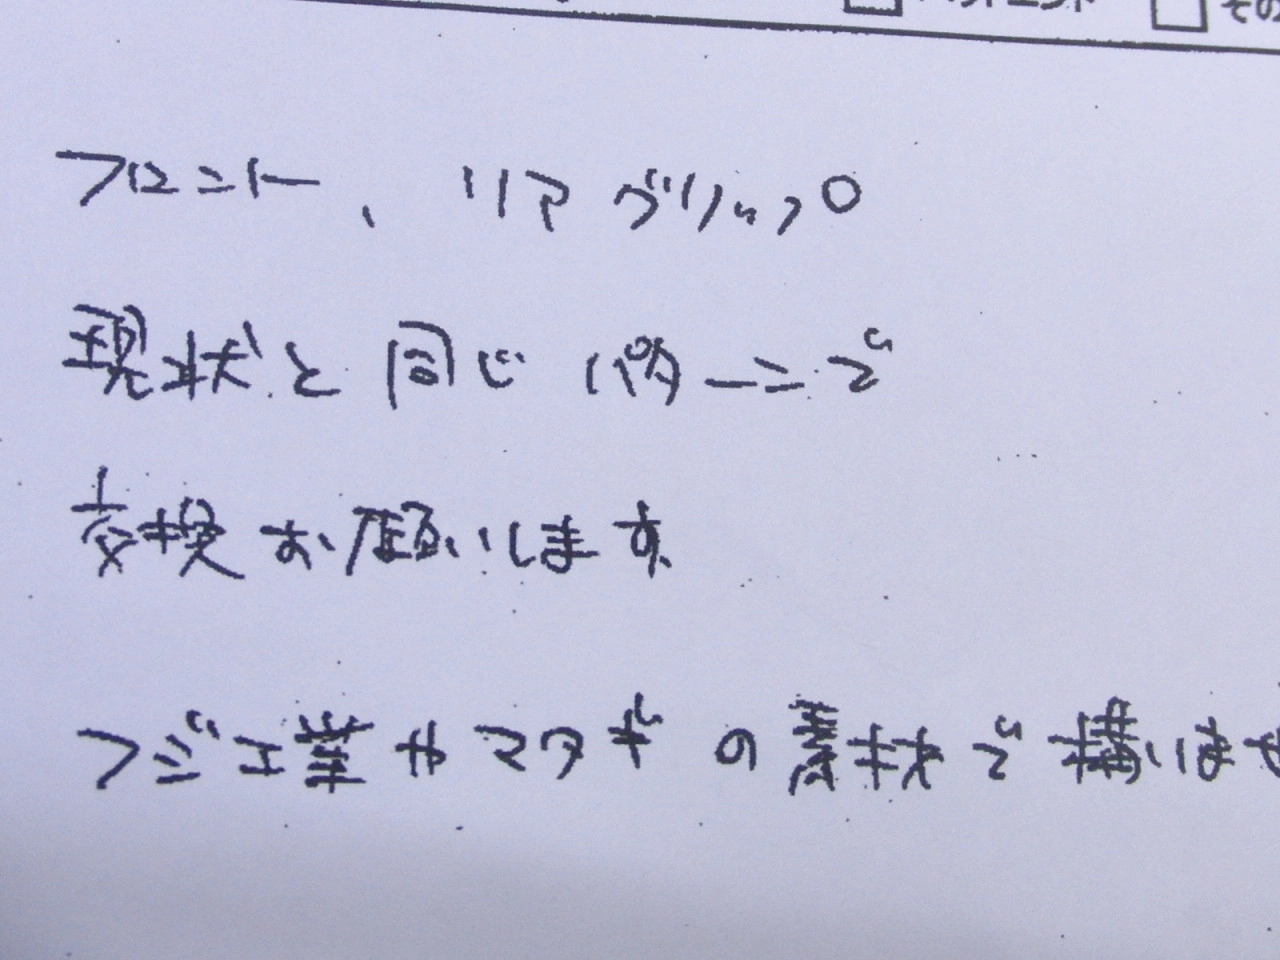 その
フロント、リアグリップ
現状と同じパターンで
交換お願いします
フジ工業やマタギの素材で構いませ